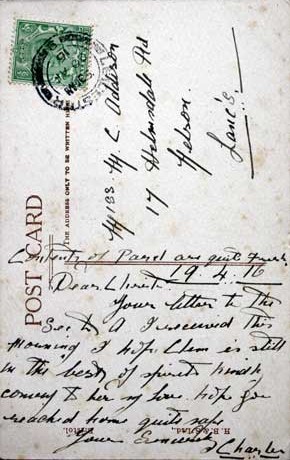 POST CARD
THE ADDRESS ONLY TO BE WRITTEN HERE
Miss M. C. Addison
17 Holmsdale Rd
Nelson.
Lancs.
Contents of Parcel are quite fresh.
19.4.16
Dear
Your letter to the
I received this
morning I hope Clem is still
in the best of spirits kindly
convey to her my love. hope you
reached home quite safe
Your
Charles
Bristol.